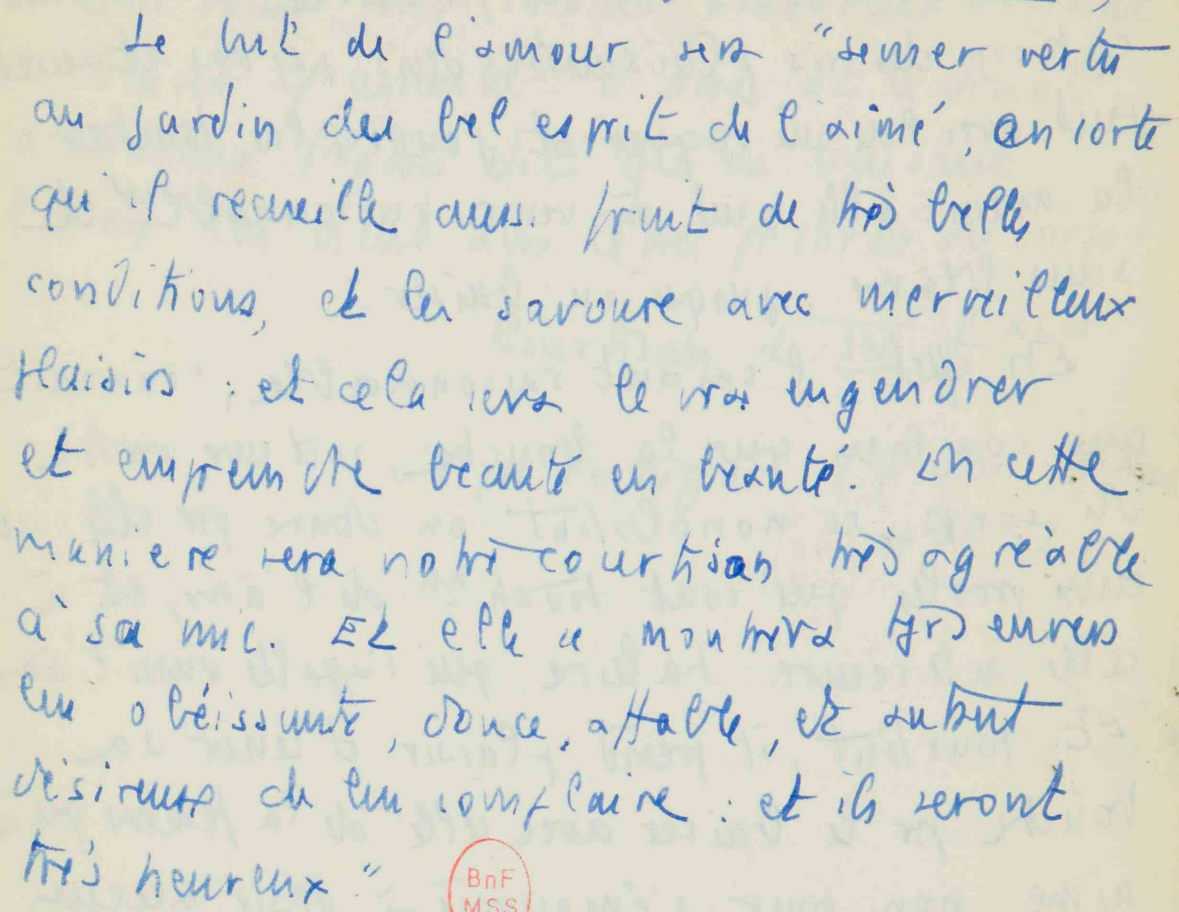 Le but de l'amour sera "semer vertu
au jardin du bel esprit de l'aimé, en sorte
qu'il recueille aussi fruit de très belles
conditions, et les savoure avec merveilleux
plaisirs ; et cela sera le vrai engendrer
et empreindre beauté en beauté. En cette
maniere sera notre courtisan très agréable
à sa mie. Et elle se montrera tjrs envers
lui obéissante, douce, affable, et autant
désireuse de lui complaire : et ils seront
très heureux"
BnF
MSS